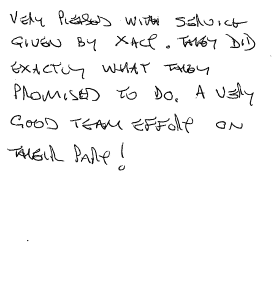 VERY PLEASED WITH SERVICE
GIVEN BY XACT. THEY DID
EXACTLY WHAT THEY
PROMISED TO DO. A VERY
GOOD TEAM EFFORT ON
THEIR PART!